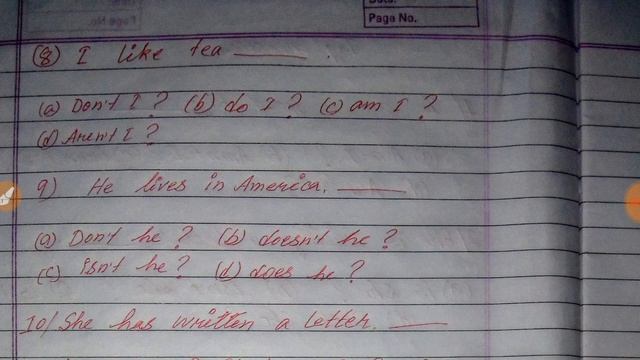 Page No.
(8) I like tea ______ .
(a) Don't I ? (b) do I ? (c) am I ?
(d) Aren't I ?
9) He lives in America. ______
(a) Don't he ? (b) doesn't he ?
(c) isn't he ? (d) does he ?
10/ She has written a letter. ____